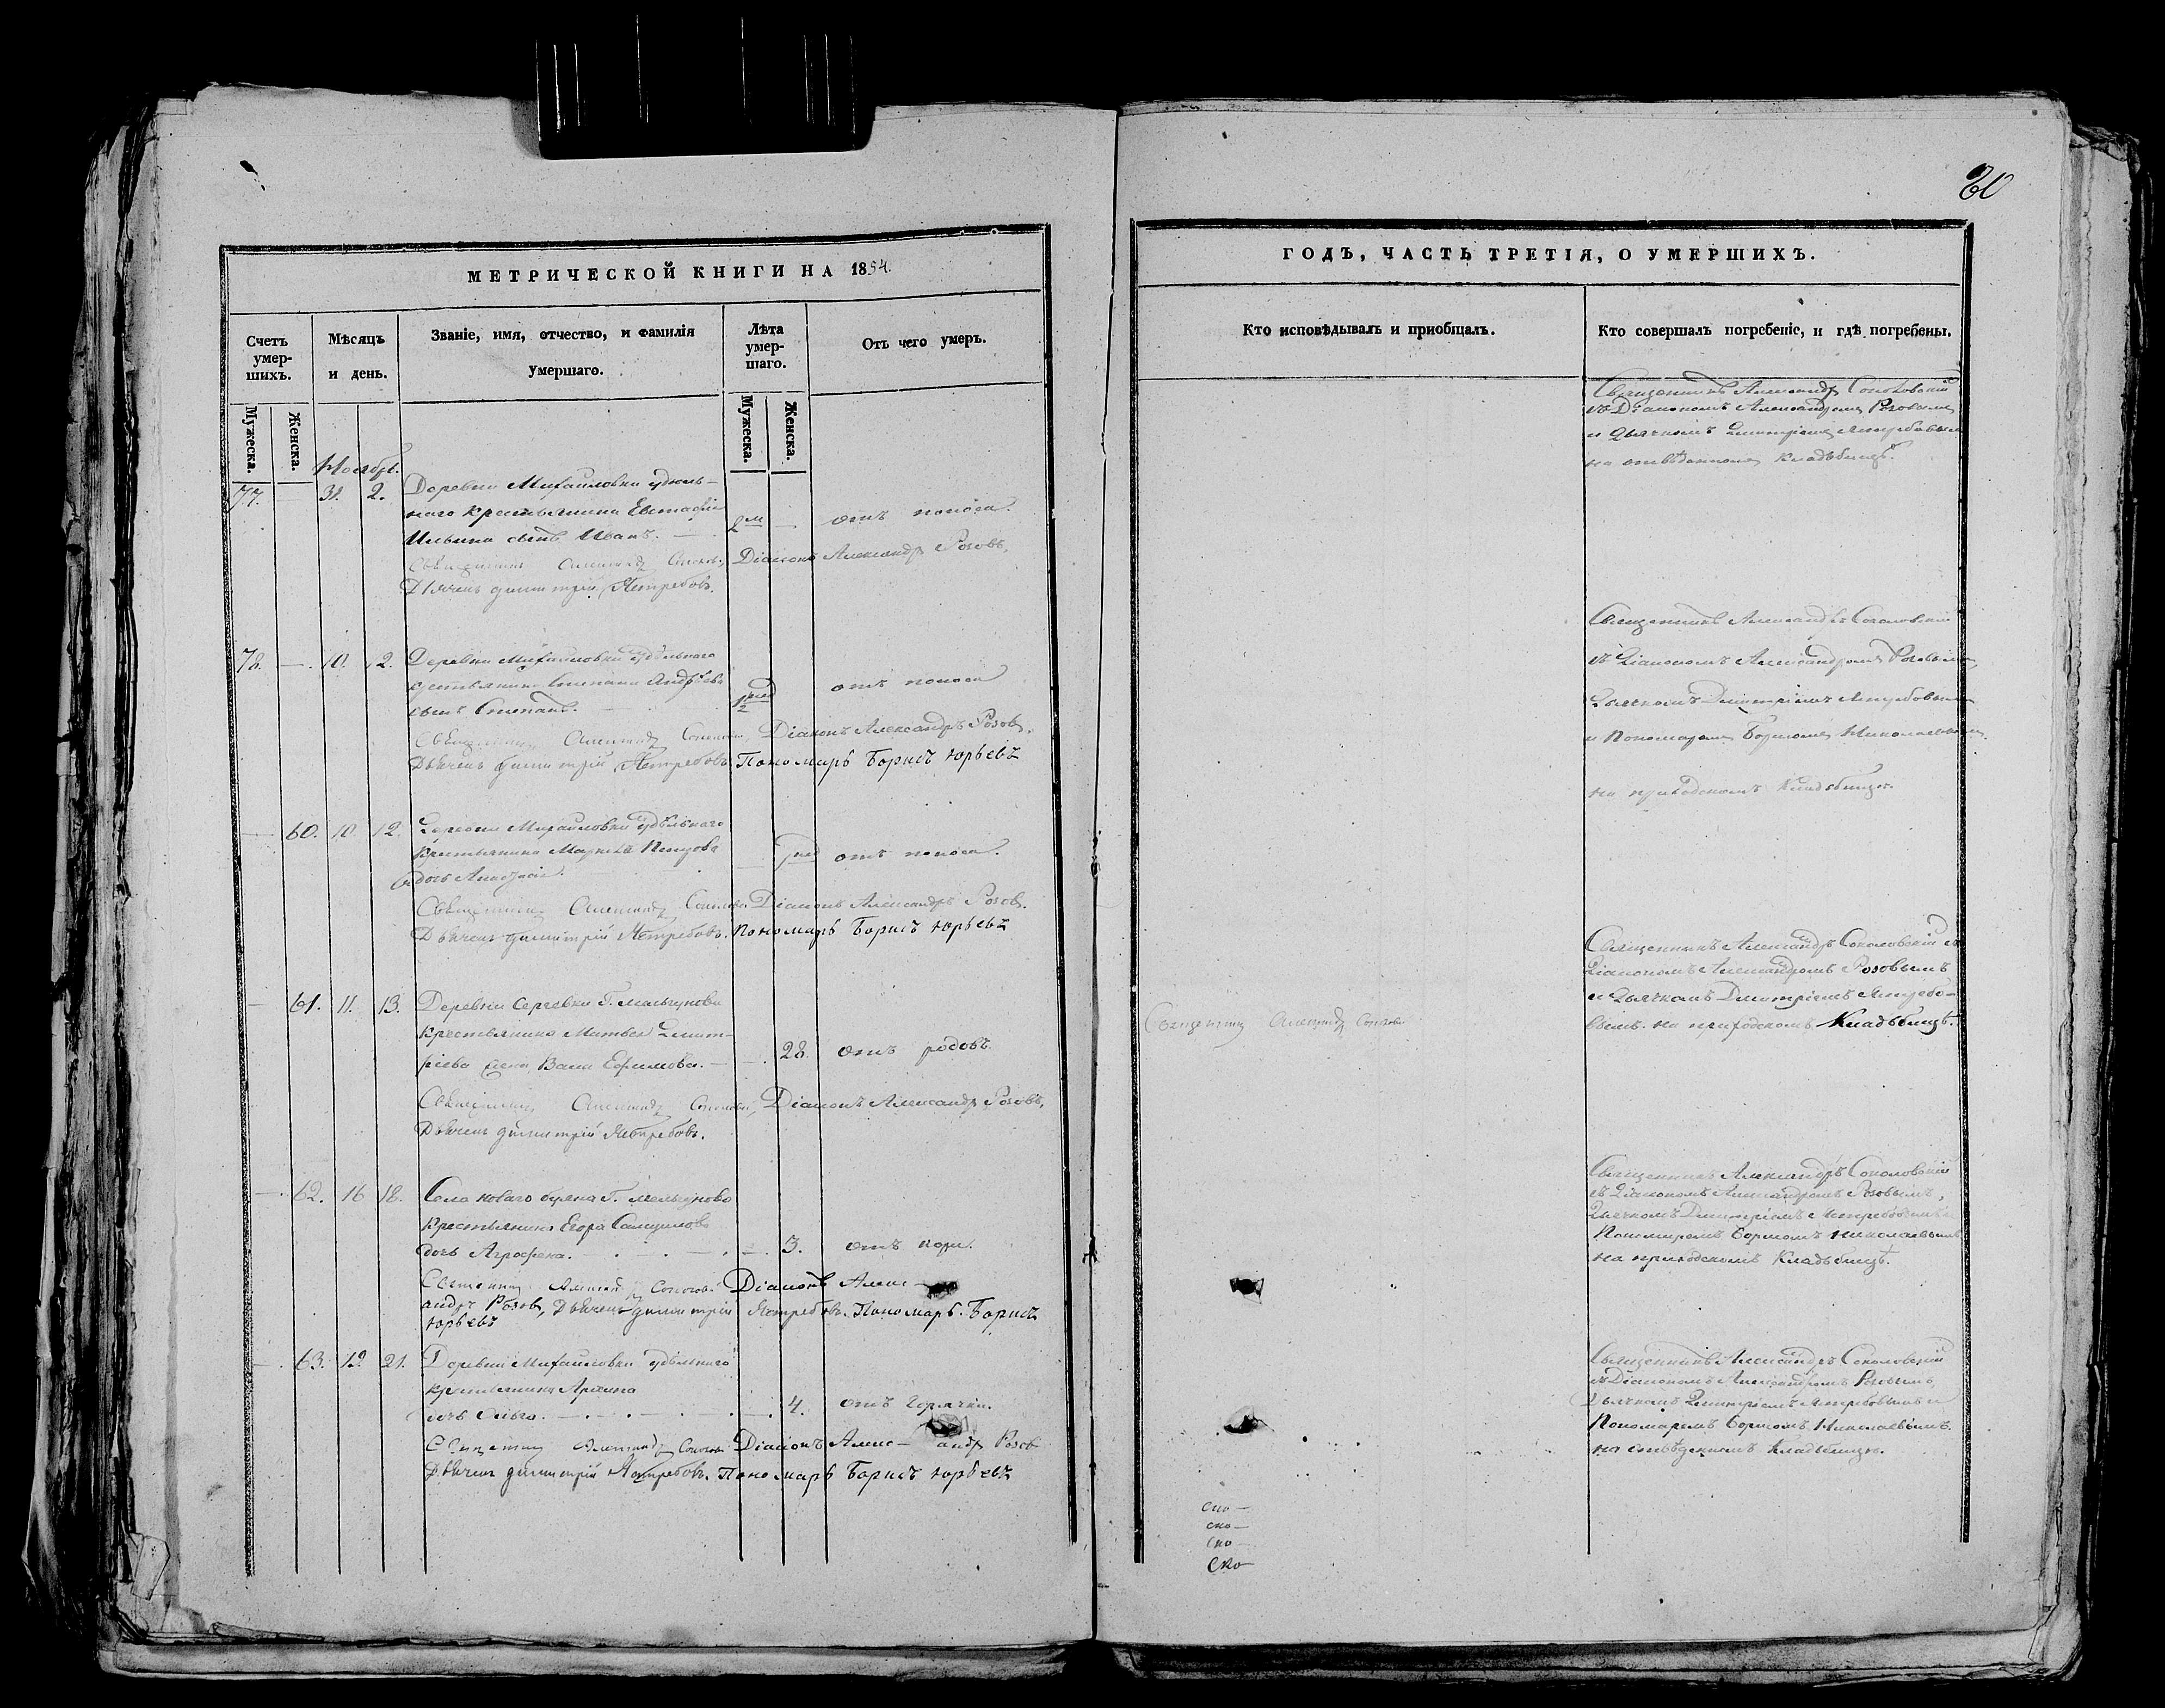 МЕТРИЧЕСКОЙ КНИГИ НА 1854.
Счетъ умер-шихъ.
Мужеска.
Женска.
Мѣсяцъ и день.
Званіе, имя, отчество, и фамилія умершаго.
Лѣта умер-шаго.
Мужеска.
Женска.
Отъ чего умеръ.
Ноябрь.
77. — 31. 2. Деревни Михайловки удѣль-
наго крестьянина Евстафія
Ильина сынъ Иванъ. — 2м — отъ поноса.
Священникъ Александръ Діаконъ Александръ Розовъ,
Дьячекъ Димитрій Ястребовъ.
78. — 10. 12. Деревни Михайловки удѣльнаго
крестьянина Степана Андрѣева
сынъ Степанъ. — отъ поноса
Священникъ Александръ Діаконъ Александръ Розовъ,
Дьячекъ Димитрій Ястребовъ Пономарь Борисъ Юрьевъ
— 60. 10. 12. Деревни Михайловки удѣльнаго
крестьянина
дочь Анастасія. отъ поноса.
Священникъ Александръ Діаконъ Александръ Розовъ.
Дьячекъ Димитрій Ястребовъ. Пономарь Борисъ Юрьевъ
— 61. 11. 13. Деревни Сергевки Г. Мельгунова
крестьянина Матвея Димит-
ріева жена Ефимова. — — 28. отъ родовъ.
Священникъ Александръ Діаконъ Александръ Розовъ,
Дьячекъ Димитрій Ястребовъ.
— 62. 16 18. Села Новаго Г. Мельгунова
крестьянина Егора
дочь Агрофена. — 3. отъ
Священникъ Александръ Діаконъ Алекс-
андръ Розовъ, Дьячекъ Димитрій Ястребовъ. Пономарь. Борисъ
Юрьевъ
— 63. 19. 21. Деревни Михайловки удѣльнаго
крестьянина
дочь Ольга. — 4. отъ горячки.
Священникъ Александръ Діаконъ Алекс-андръ Розовъ
Дьячекъ Димитрій Ястребовъ. Пономарь Борисъ Юрьевъ
60
ГОДЪ, ЧАСТЬ ТРЕТІЯ, О УМЕРШИХЪ.
Кто исповѣдывалъ и пріобщалъ.
Кто совершалъ погребеніе, и гдѣ погребены.
Священникъ Александръ Соколовскій
съ Діакономъ Александромъ Розовымъ
и Дьячкомъ Димитріемъ Ястребовымъ
на отведенномъ кладбищѣ.
Священникъ Александръ Соколовскій
съ Діакономъ Александромъ Розовымъ
Дьячкомъ Димитріемъ Ястребовымъ
и Пономаремъ Борисомъ Николаевымъ
на приходскомъ кладбищѣ.
Священникъ Александръ
Священникъ Александръ Соколовскій съ
Діакономъ Александромъ Розовымъ
и Дьячкомъ Дмитріемъ Ястребо-
вымъ. на приходскомъ Кладбищѣ.
Священникъ Александръ Соколовскій
съ Діакономъ Александромъ Розовымъ,
Дьячкомъ Дмитріемъ Ястребовымъ и
Пономаремъ Борисомъ Николаевымъ
на приходскомъ Кладбищѣ.
Священникъ Александръ Соколовскій
съ Діакономъ Александромъ Розовымъ,
Дьячкомъ Димитріемъ Ястребовымъ и
Пономаремъ Борисомъ Николаевымъ.
на отведенномъ Кладбищѣ.
ско—
ско—
ско—
Ско—